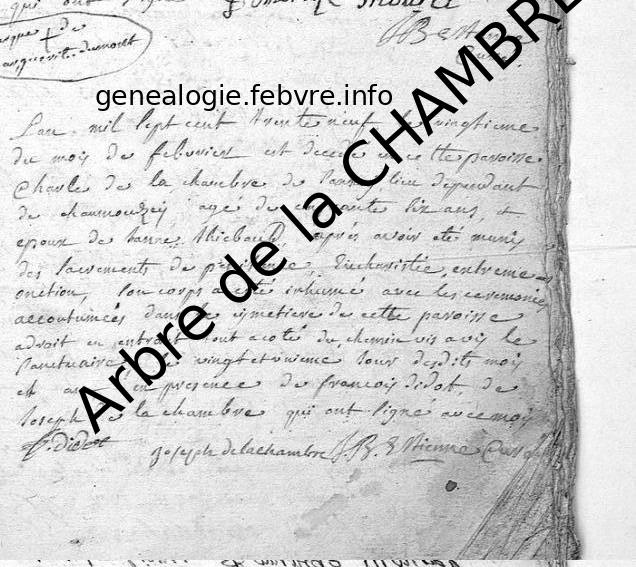 qui ont signé
marque † de
marguerite dumont
J B Estienne
Curé
genealogie.febvre.info
Arbre de la CHAMBRE
Lan mil sept cent trente neuf le vingtieme
du mois de febvrier est decede en cette paroisse
Charle de la chambre de lieu dependant
de chaumouzey agé de cinquante six ans, et
epoux de Janne thiebaud, aprés avoir eté munis
des Sacrements de penitence, Eucharistie, extreme
onction, Son corps a eté inhumé avec les ceremonies
accoutumées dans le cymetiere de cette paroisse
adroit en entrant tout a coté du chemin vis a vis le
Sanctuaire, le vingt et unieme Jour desdits mois
et an en presence de francois didot, de
Joseph de la chambre qui ont signé avec moy
f. didot
Joseph delachambre J. B. Estienne Curé